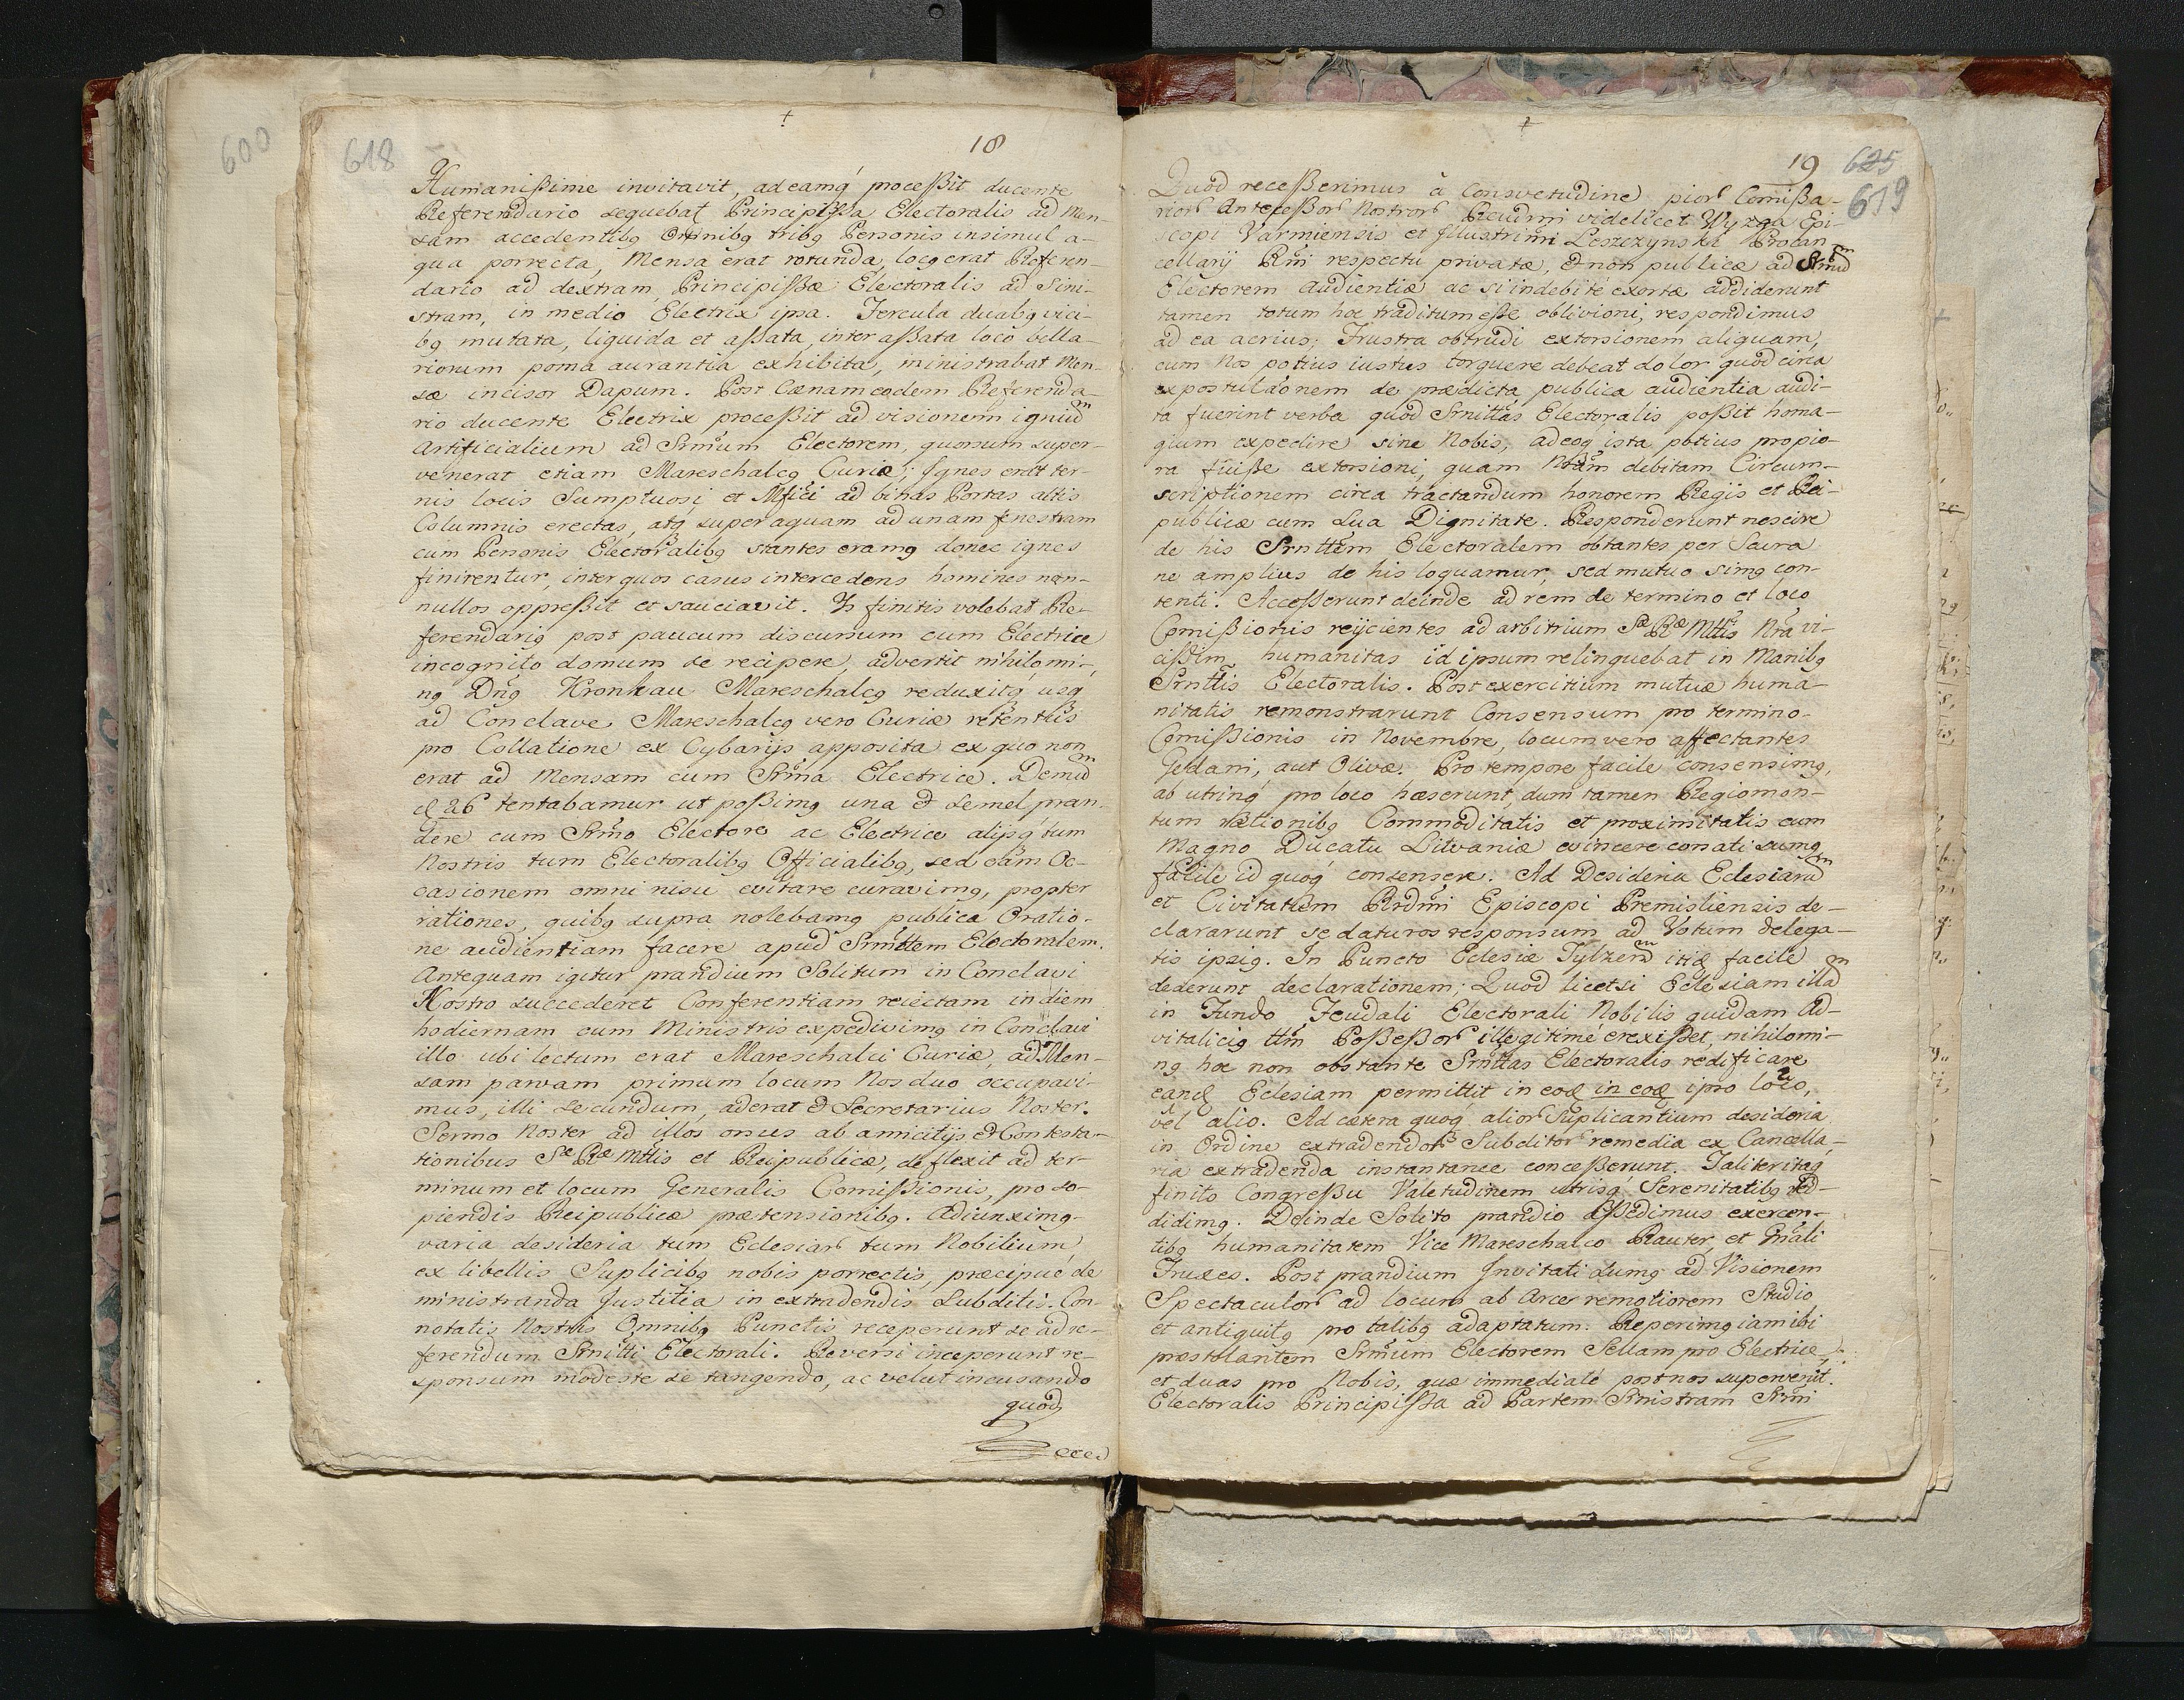 600
618
18
Humanißime invitavit, ad eamq́ proceßit ducente
Referendario sequebat Principißa Electoralis ad Men-
sam accedentibq Omnibq tribq Personis insimul a-
qua porrecta, Mensa erat rotunda, locq erat Referen-
dario ad dextram, Principißæ Electoralis ad Sini-
stram, in medio Electrix ipsa. Fercula duabq vici-
bq mutata, liquida et aßata, inter aßata locò bella-
riorum poma aurantia exhibita, ministrabat Men-
sæ incisor Dapum. Post Cænam eodem Referenda-
rio ducente Electrix proceßit ad visionem igniuM
Artificialium ad Srmum Electorem, quorsum super-
venerat etiam Mareschalcq Curiæ; Ignes erãt ter-
nis locis Sumptuosi, et Mfici ad binas Portas altis
Columnis erectas, atq super aquam ad unam fenestram
cum Personis Electoralibq stantes eramq donec ignes
finirentur, inter quos casus intercedens homines non-
nullos oppreßit et sauciavit. Ijs finitis volebat Re-
ferendariq post paucum discursum cum Electrice
incognito domum se recipere, advertit nihilomi-
nq Dnq Kronkau Mareschalcq reduxitq́ usq
ad Conclave, Mareschalcq vero Curiæ retentus
pro Collatione ex Cybarijs apposita ex quo non
erat ad Mensam cum Srma Electrice. DemuM
d 26 tentabamur ut poßimq una & semel pran-
dere cum Srmo Electore ac Electrice alijsq́ tum
Nostris tum Electoralibq Officialibq, sed eam Oc-
casionem omni nisu evitare curavimq, propter
rationes, quibq supra nolebamq publica Oratio-
ne audientiam facere apud Srnittem Electoralem.
Antequam igitur prandium Solitum in Conclavi
Nostro succederet Conferentiam reiectam in diem
hodiernam cum Ministris expedivimq in Conclavi
illo ubi lectum erat Mareschalci Curiæ, ad Men-
sam parvam primum locum Nos duo occupavi-
mus, illi secundum, aderat & Secretarius Noster.
Sermo Noster ad illos orsus ab amicitijs & Contesta-
tionibus Sæ Ræ Mttis et Reipublicæ, deflexit ad ter-
minum et locum Generalis Comißionis, pro so-
piendis Reipublicæ prætensionibq. Adiunximq
varia desideria tum Eclesiar tum Nobilium,
ex libellis Suplicibq nobis porrectis, præcipuè de
ministranda Justitia in extradendis Subditis. Con-
notatis Nostris Omnibq Punctis receperunt se ad re-
ferendum Srnitti Electorali. Reversi inceperunt re-
sponsum modeste se tangendo, ac velut incusando
quod
19
625
619
Quod receßerimus à Consvetudine pior Comißa-
rior Anteceßor Nostror Reudmi videlicet Wyzga Epi-
scopi Varmiensis et Illustrimi Leszczynski Procan-
cellarij Rni respectu privatæ, & non publicæ ad Srmum
Electorem Audientiæ ac si indebitè exortæ addiderunt
tamen totum hoc traditum eße oblivioni; respondimus
ad ea acrius; Frustra obtrudi extorsionem aliquam,
cum Nos potius iustus torquere debeat dolor quod circa
expostulãonem de prædicta publica audientia audi-
ta fuerint verba quod Srnittas Electoralis poßit homa-
gium expedire sine Nobis, adeoq ista potius propio-
ra fuiße extorsioni, quam Nram debitam Circum-
scriptionem circa tractandum honorem Regis et Rei-
publicæ cum Sua Dignitate. Responderunt nescire
de his Srnittem Electoralem obtantes per Sacra
ne amplius de his loquamur, sed mutuo simq con-
tenti. Acceßerunt deinde ad rem de termino et loco
Comißionis reijcientes ad arbitrium Sæ Ræ Mttis Nra vi-
cißim humanitas id ipsum relinquebat in Manibq
Srnittis Electoralis. Post exercitium mutuæ huma-
nitatis remonstrarunt Consensum pro termino
Comißionis in Novembre, locum vero affectantes
Gedani, aut Olivæ. Pro tempore facile consensimq,
ab utrinq́ pro loco hæserunt, dum tamen Regiomon-
tum rationibq Commoditatis et proximitatis cum
Magno Ducatu Litvaniæ evincere conati sumq
facile id quoq́ consensere. Ad Desideria EclesiaruM
et Civitatum Rndmi Episcopi Premisliensis de-
clararunt se daturos responsum ad Votum delega-
tis ipsiq. In Puncto Eclesiæ Tylzen itid facile
dederunt declarationem; Quod licet si Eclesiam illaM
in Fundo Feudali Electorali Nobilis quidam Ad-
vitaliciq ttm Poßeßor illegitimè erexißet, nihilomi-
nq hoc non obstante Srnittas Electoralis redificare
eand Eclesiam permittit in eod in eod ipso loco,
vel alio. Ad cætera quoq́ alior Suplicantium desideria
in Ordine extradendor Subditor remedia ex Cancella-
ria extradenda instantanee conceßerunt. Taliter itaq
finito Congreßu Valetudinem utrisq́ Serenitatibq red-
didimq. Deinde Solito prandio aßedimus exercen-
tibq humanitatem Vice Mareschalco Rauter, et Gnali
Truxes. Post prandium Invitati sumq ad Visionem
Spectaculor ad locum ab Arce remotiorem Studio
et antiquitq pro talibq adaptatum. Reperimq iam ibi
præstolantem Srmum Electorem Sellam pro Electrice,
et duas pro Nobis, quæ immediatè post nos supervenit.
Electoralis Principißa ad Partem Sinistram Srmi